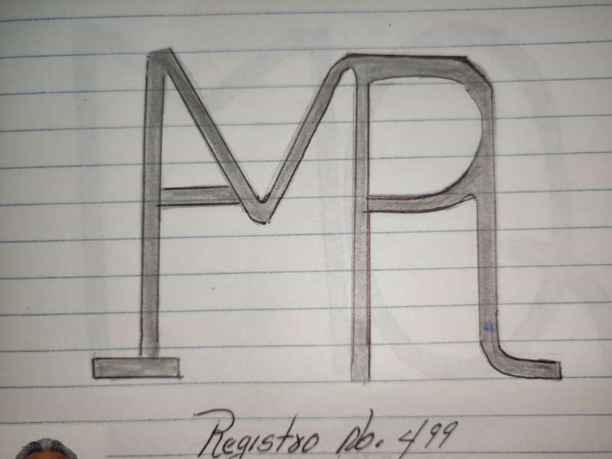 MR
Registro No. 499